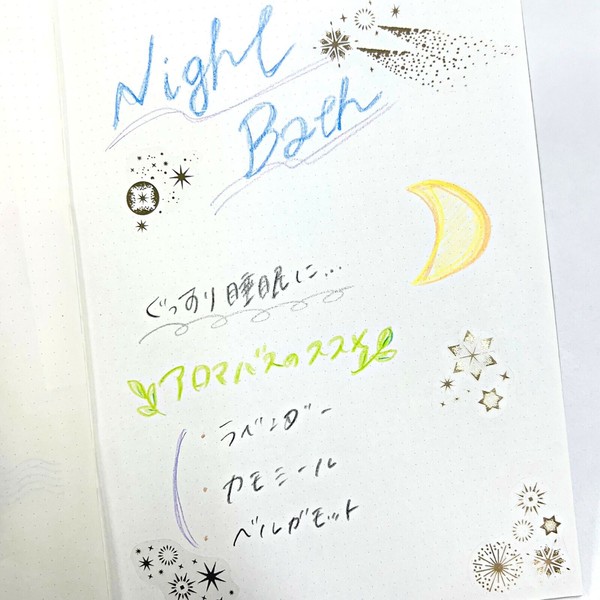 Night
Bath
ぐっすり睡眠に...
アロマバスのススメ
・ラベンダー
・カモミール
・ベルガモット